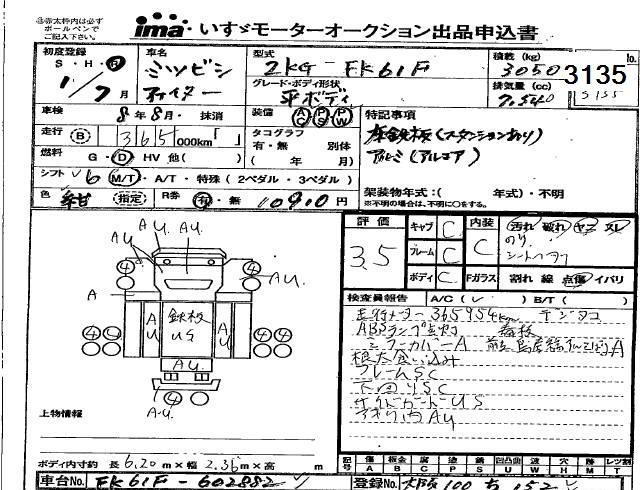 ⚠赤太枠内は必ず
ボールペンで
ご記入下さい。
ima. いすゞモーターオークション出品申込書
初度登録
S・H・R
1/7月
車名
ミツビシ
ファイター
型式
2KG-FK61F
グレード・ボディ形状
平ボディ
積載 (kg)
3050
3135
No.
排気量 (cc)
7.540
5155
車検
8年8月・抹消
装備
AC PS PW
特記事項
走行 B 365 000km「 」
タコグラフ
有・無 別体
( 年 月)
アルミ(アルコア)
燃料
G・D HV 他( )
シフト 6 M/T・A/T・特殊(2ペダル・3ペダル)
色 紺 (指定) R券 有・無 10910円
架装物年式:( 年式)・不明
※不明の場合は、不明に○をする。
評価
3.5
キャブ C
フレーム C
ボディ C
内装
C
汚れ 破れ ヤニ スレ
のり
Fガラス 割れ 線 点傷 イバリ
検査員報告 A/C( ) B/T( )
走行メーター 365954km デジタコ
ABSランプ点灯
ミラーカバーA
根太食い込み
フレームSC
下回りSC
サイドガードUS
アオリ内AU
AU
AU
A
④
④
AU
AU
鉄板
US
AU
④④
④④
AU
④
A・U
上物情報
ボディ内寸約 長 6.20 m×幅 2.36 m×高 m
記号
傷 A
板金 B
腐 C
塗 P
錆 S
凹凸曲 U
波 W
穴 H
跡 M
レツ割 T
車台No. FK61F-602882
登録No. 大阪 100